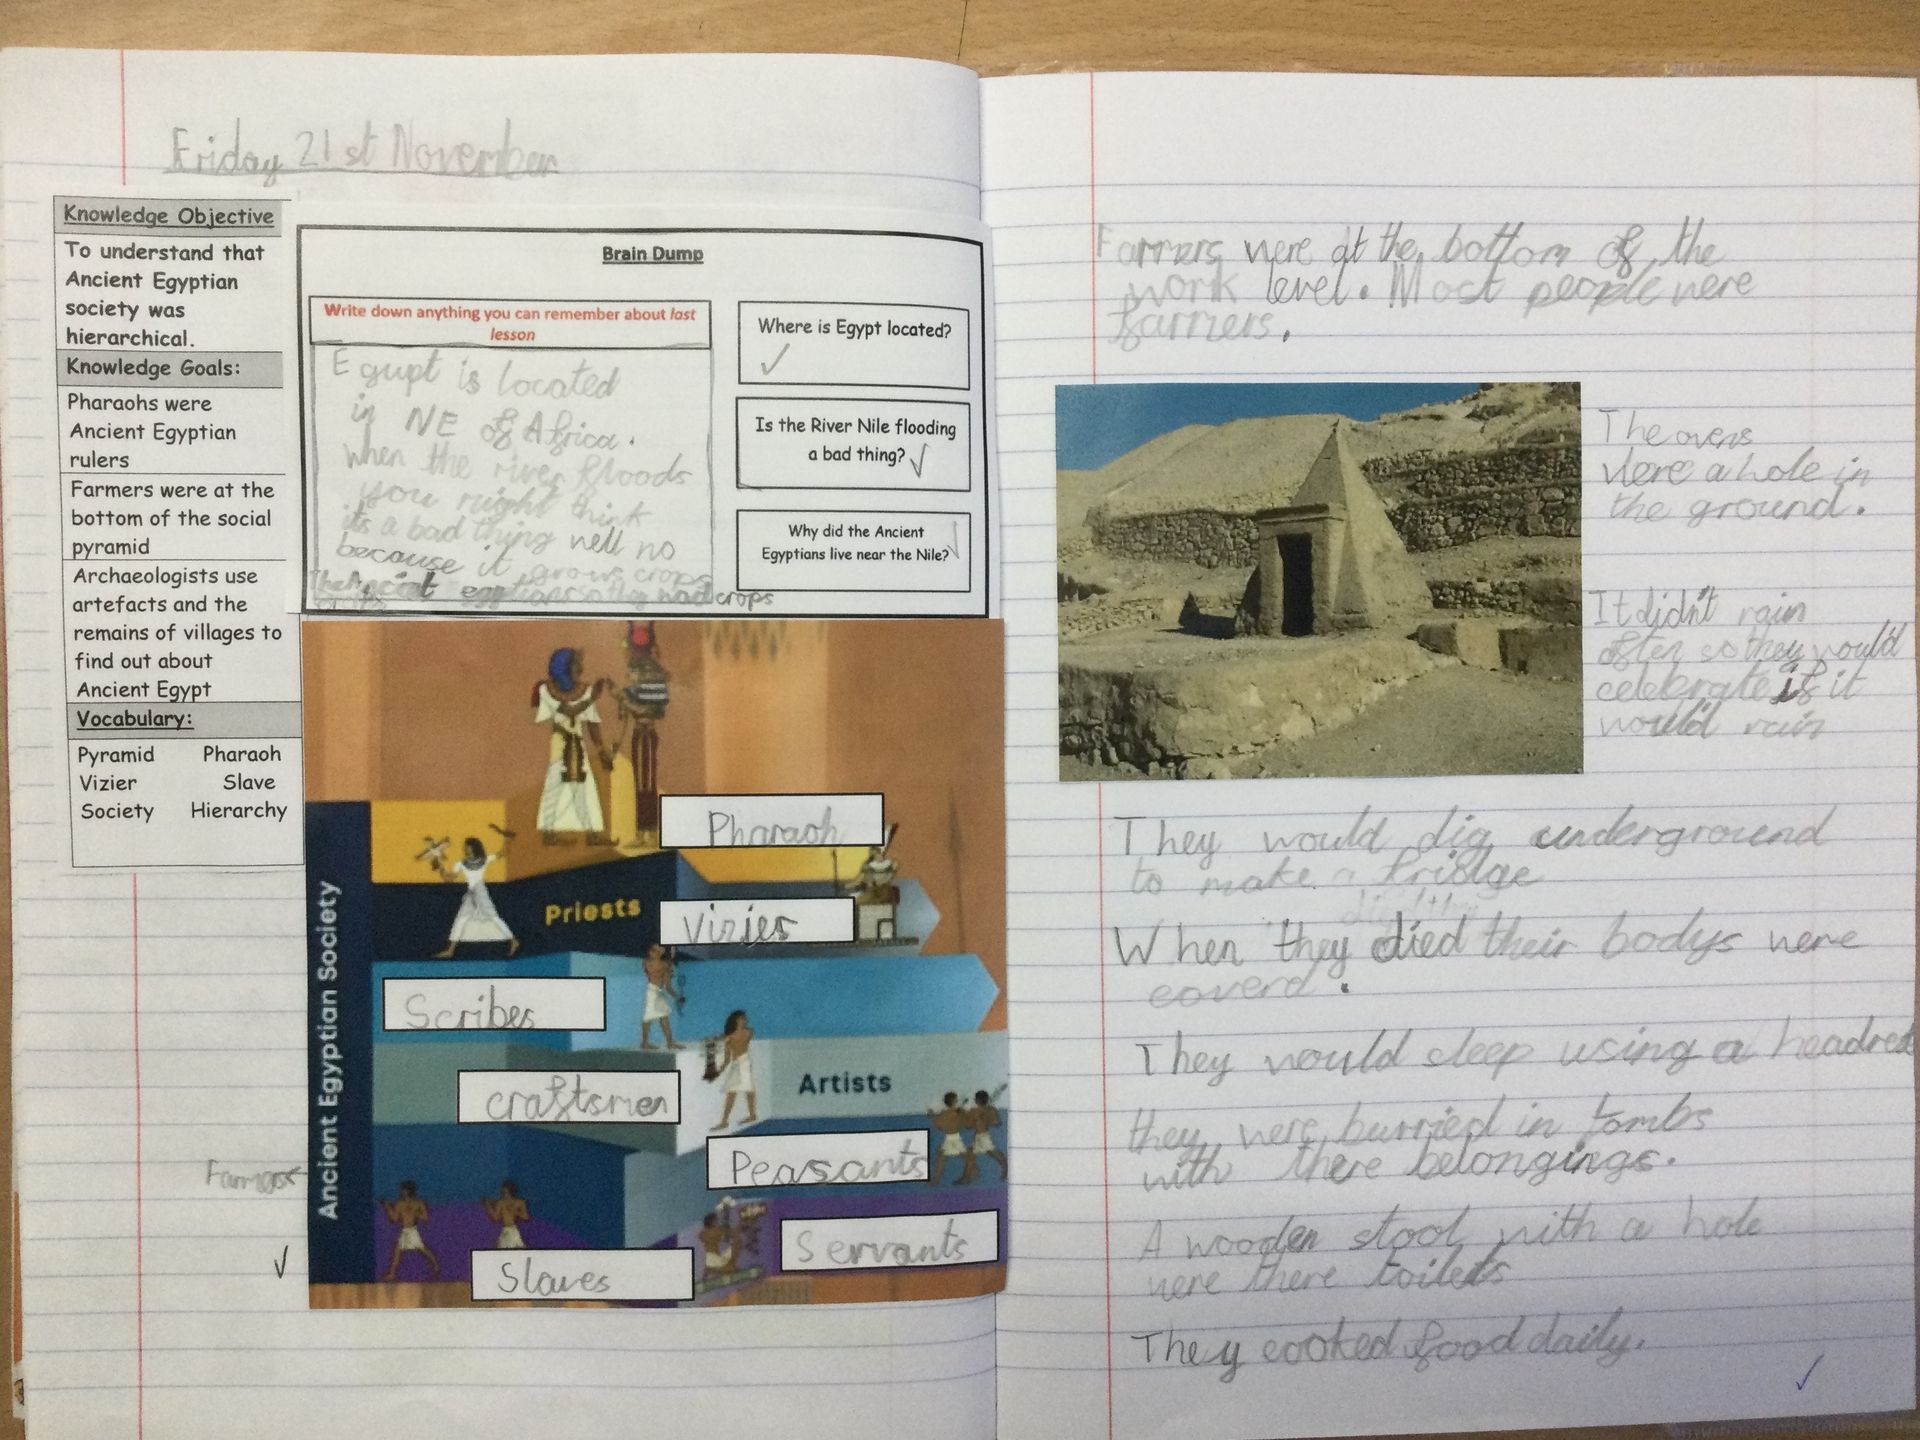 Friday 21st November
Knowledge Objective
To understand that
Ancient Egyptian
society was
hierarchical.
Knowledge Goals:
Pharaohs were
Ancient Egyptian
rulers
Farmers were at the
bottom of the social
pyramid
Archaeologists use
artefacts and the
remains of villages to
find out about
Ancient Egypt
Vocabulary:
Pyramid Pharaoh
Vizier Slave
Society Hierarchy
Brain Dump
Write down anything you can remember about last
lesson
Egupt is located
in NE of Africa.
when the river floods
you might think
its a bad thing well no
because it grows crops
egyptians so they had crops
Where is Egypt located?
Is the River Nile flooding
a bad thing?
Why did the Ancient
Egyptians live near the Nile?
Ancient Egyptian Society
Pharaoh
Priests
Vizier
Scribes
craftsmen
Artists
Peasants
Farmers
Servants
Slaves
Farmers were at the bottom of the
work level. Most people were
farmers.
The ovens
were a hole in
the ground.
It didn't rain
often so they would
celebrate if it
would rain
They would dig underground
to make a fridge
When they died their bodys were
coverd.
They would sleep using a headrest
they were burried in tombs
with there belongings.
A wooden stool with a hole
were there toilets
They cooked food daily.